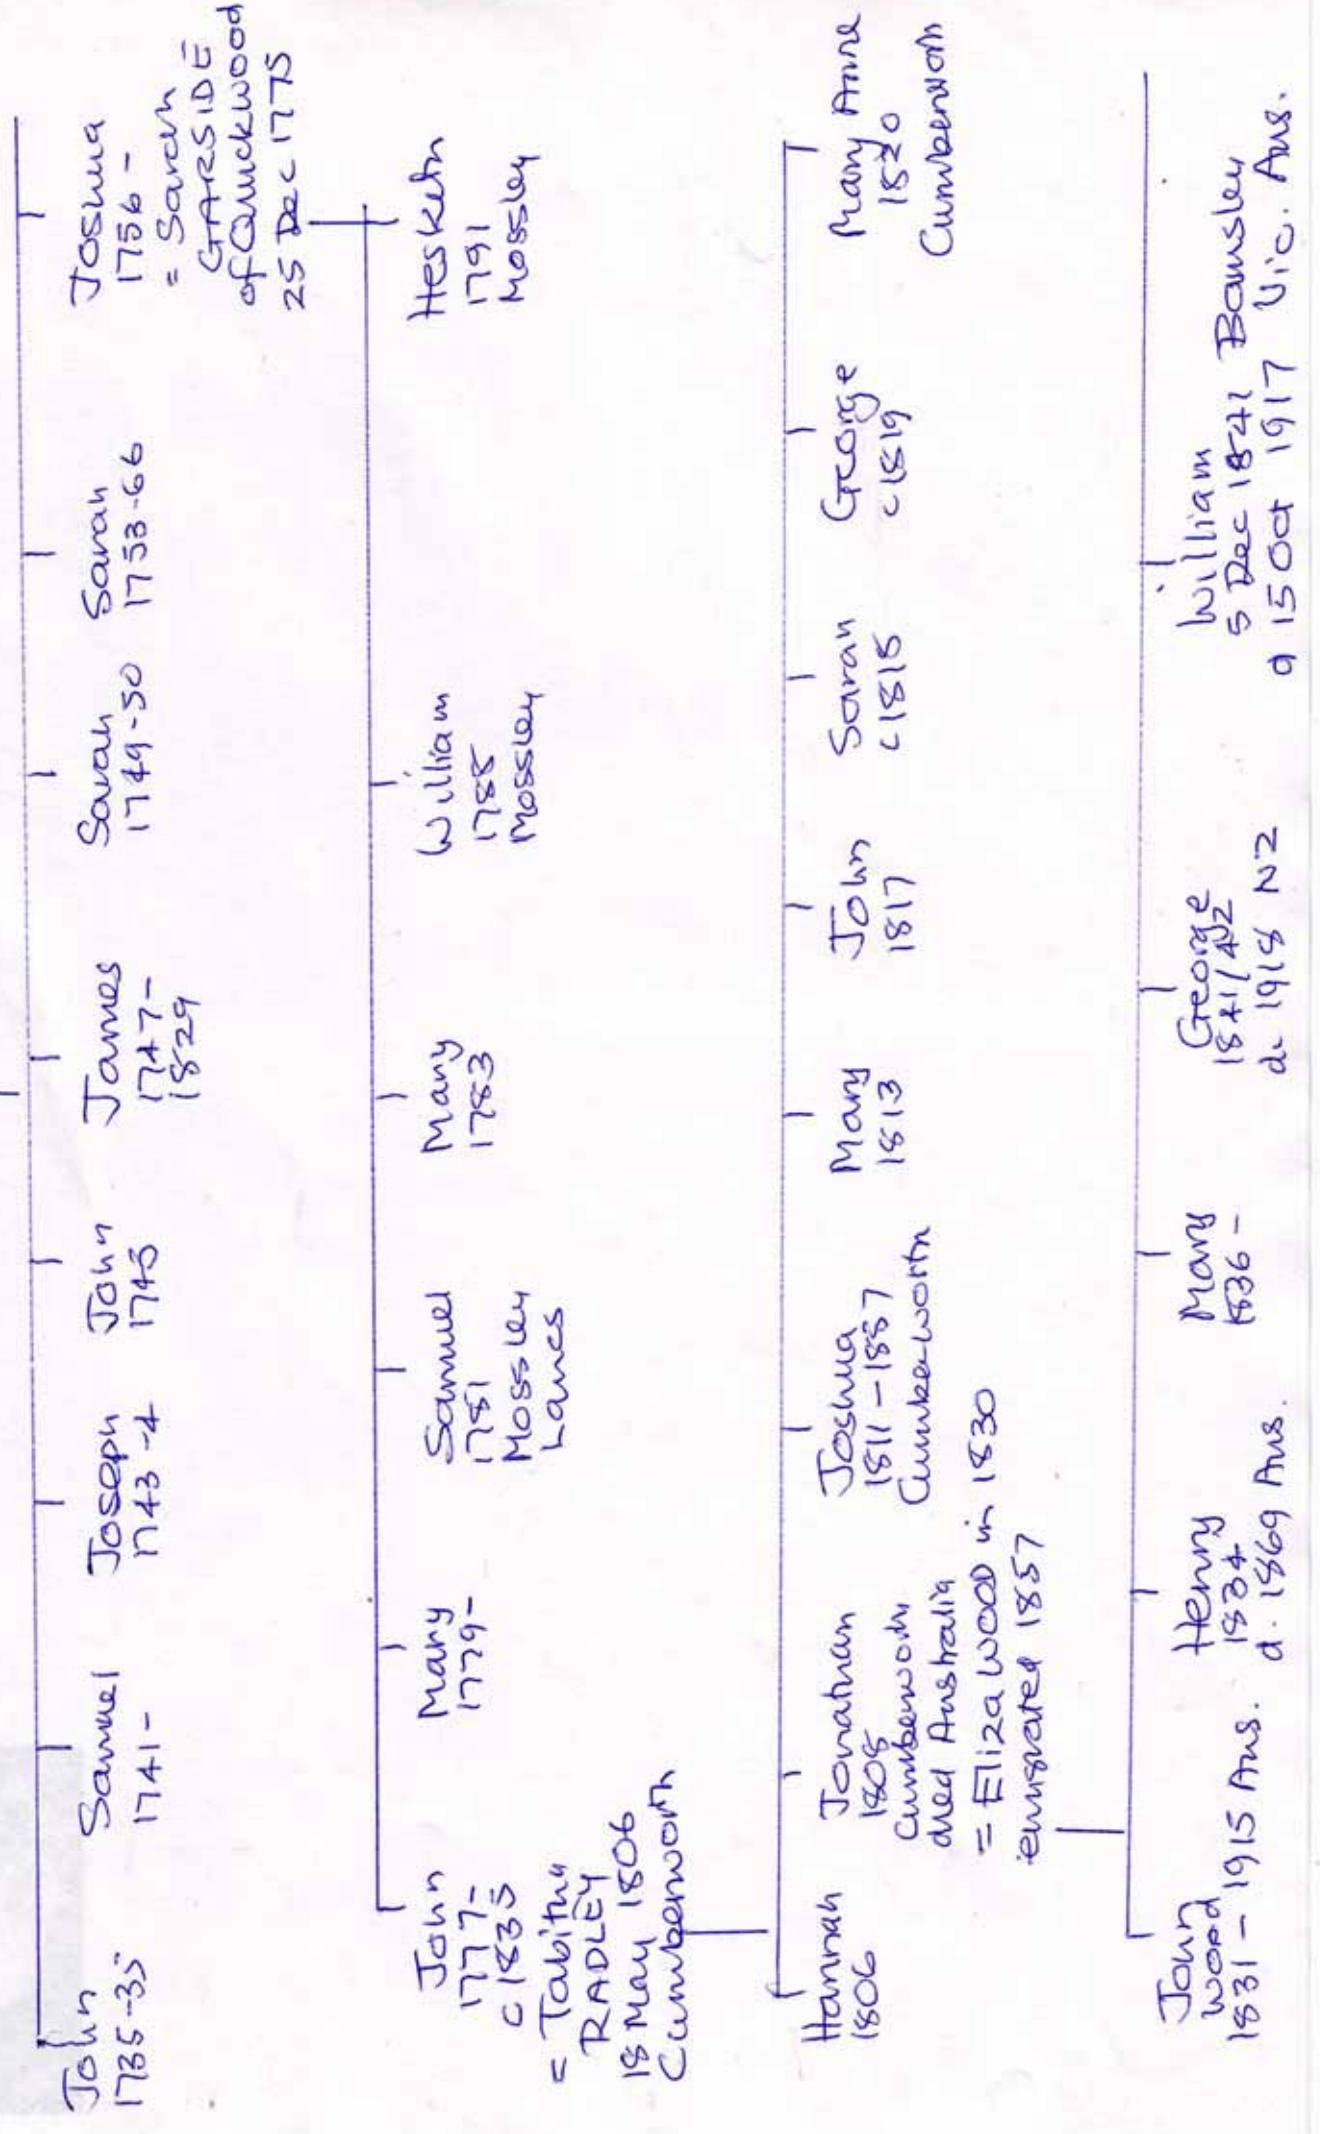 John
1735-35
Samuel
1741-
Joseph
1743-4
John
1745
James
1747-
1829
Sarah
1749-50
Sarah
1753-66
Joshua
1756-
= Sarah
GARSIDE
of Quickwood
25 Dec 1775
John
1777-
c1835
= Tabitha
RADLEY
18 May 1806
Cumberworth
Mary
1779-
Samuel
1781
Mossley
Lancs
Mary
1783
William
1785
Mossley
Hesketh
1791
Mossley
Hannah
1806
Jonathan
1808
Cumberworth
died Australia
= Eliza WOOD in 1830
emigrated 1857
Joshua
1811-1887
Cumberworth
Mary
1813
John
1817
Sarah
c1818
George
c1819
Mary Anne
1820
Cumberworth
John
Wood
1831-1915 Aus.
Henry
1834
d. 1869 Aus.
Mary
1836-
George
1841/42
d. 1918 NZ
William
5 Dec 1841 Barnsley
d 15 Oct 1917 Vic. Aus.